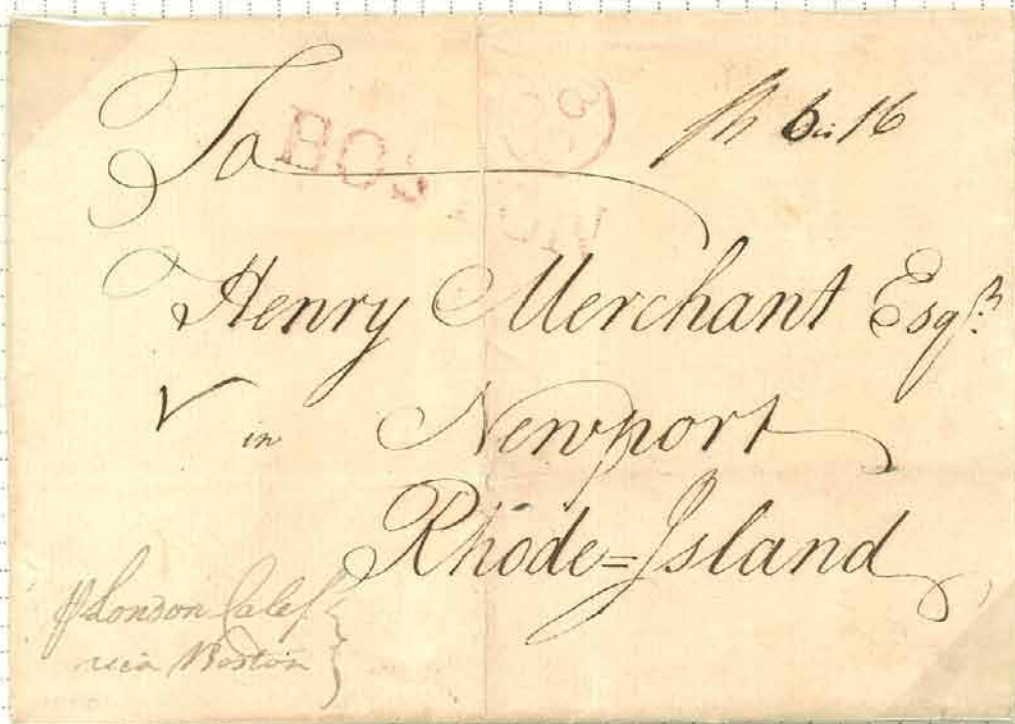 To
BOSTON
6:16
Henry Merchant Esqr.
in Newport
Rhode=Island
London Calef
via Boston